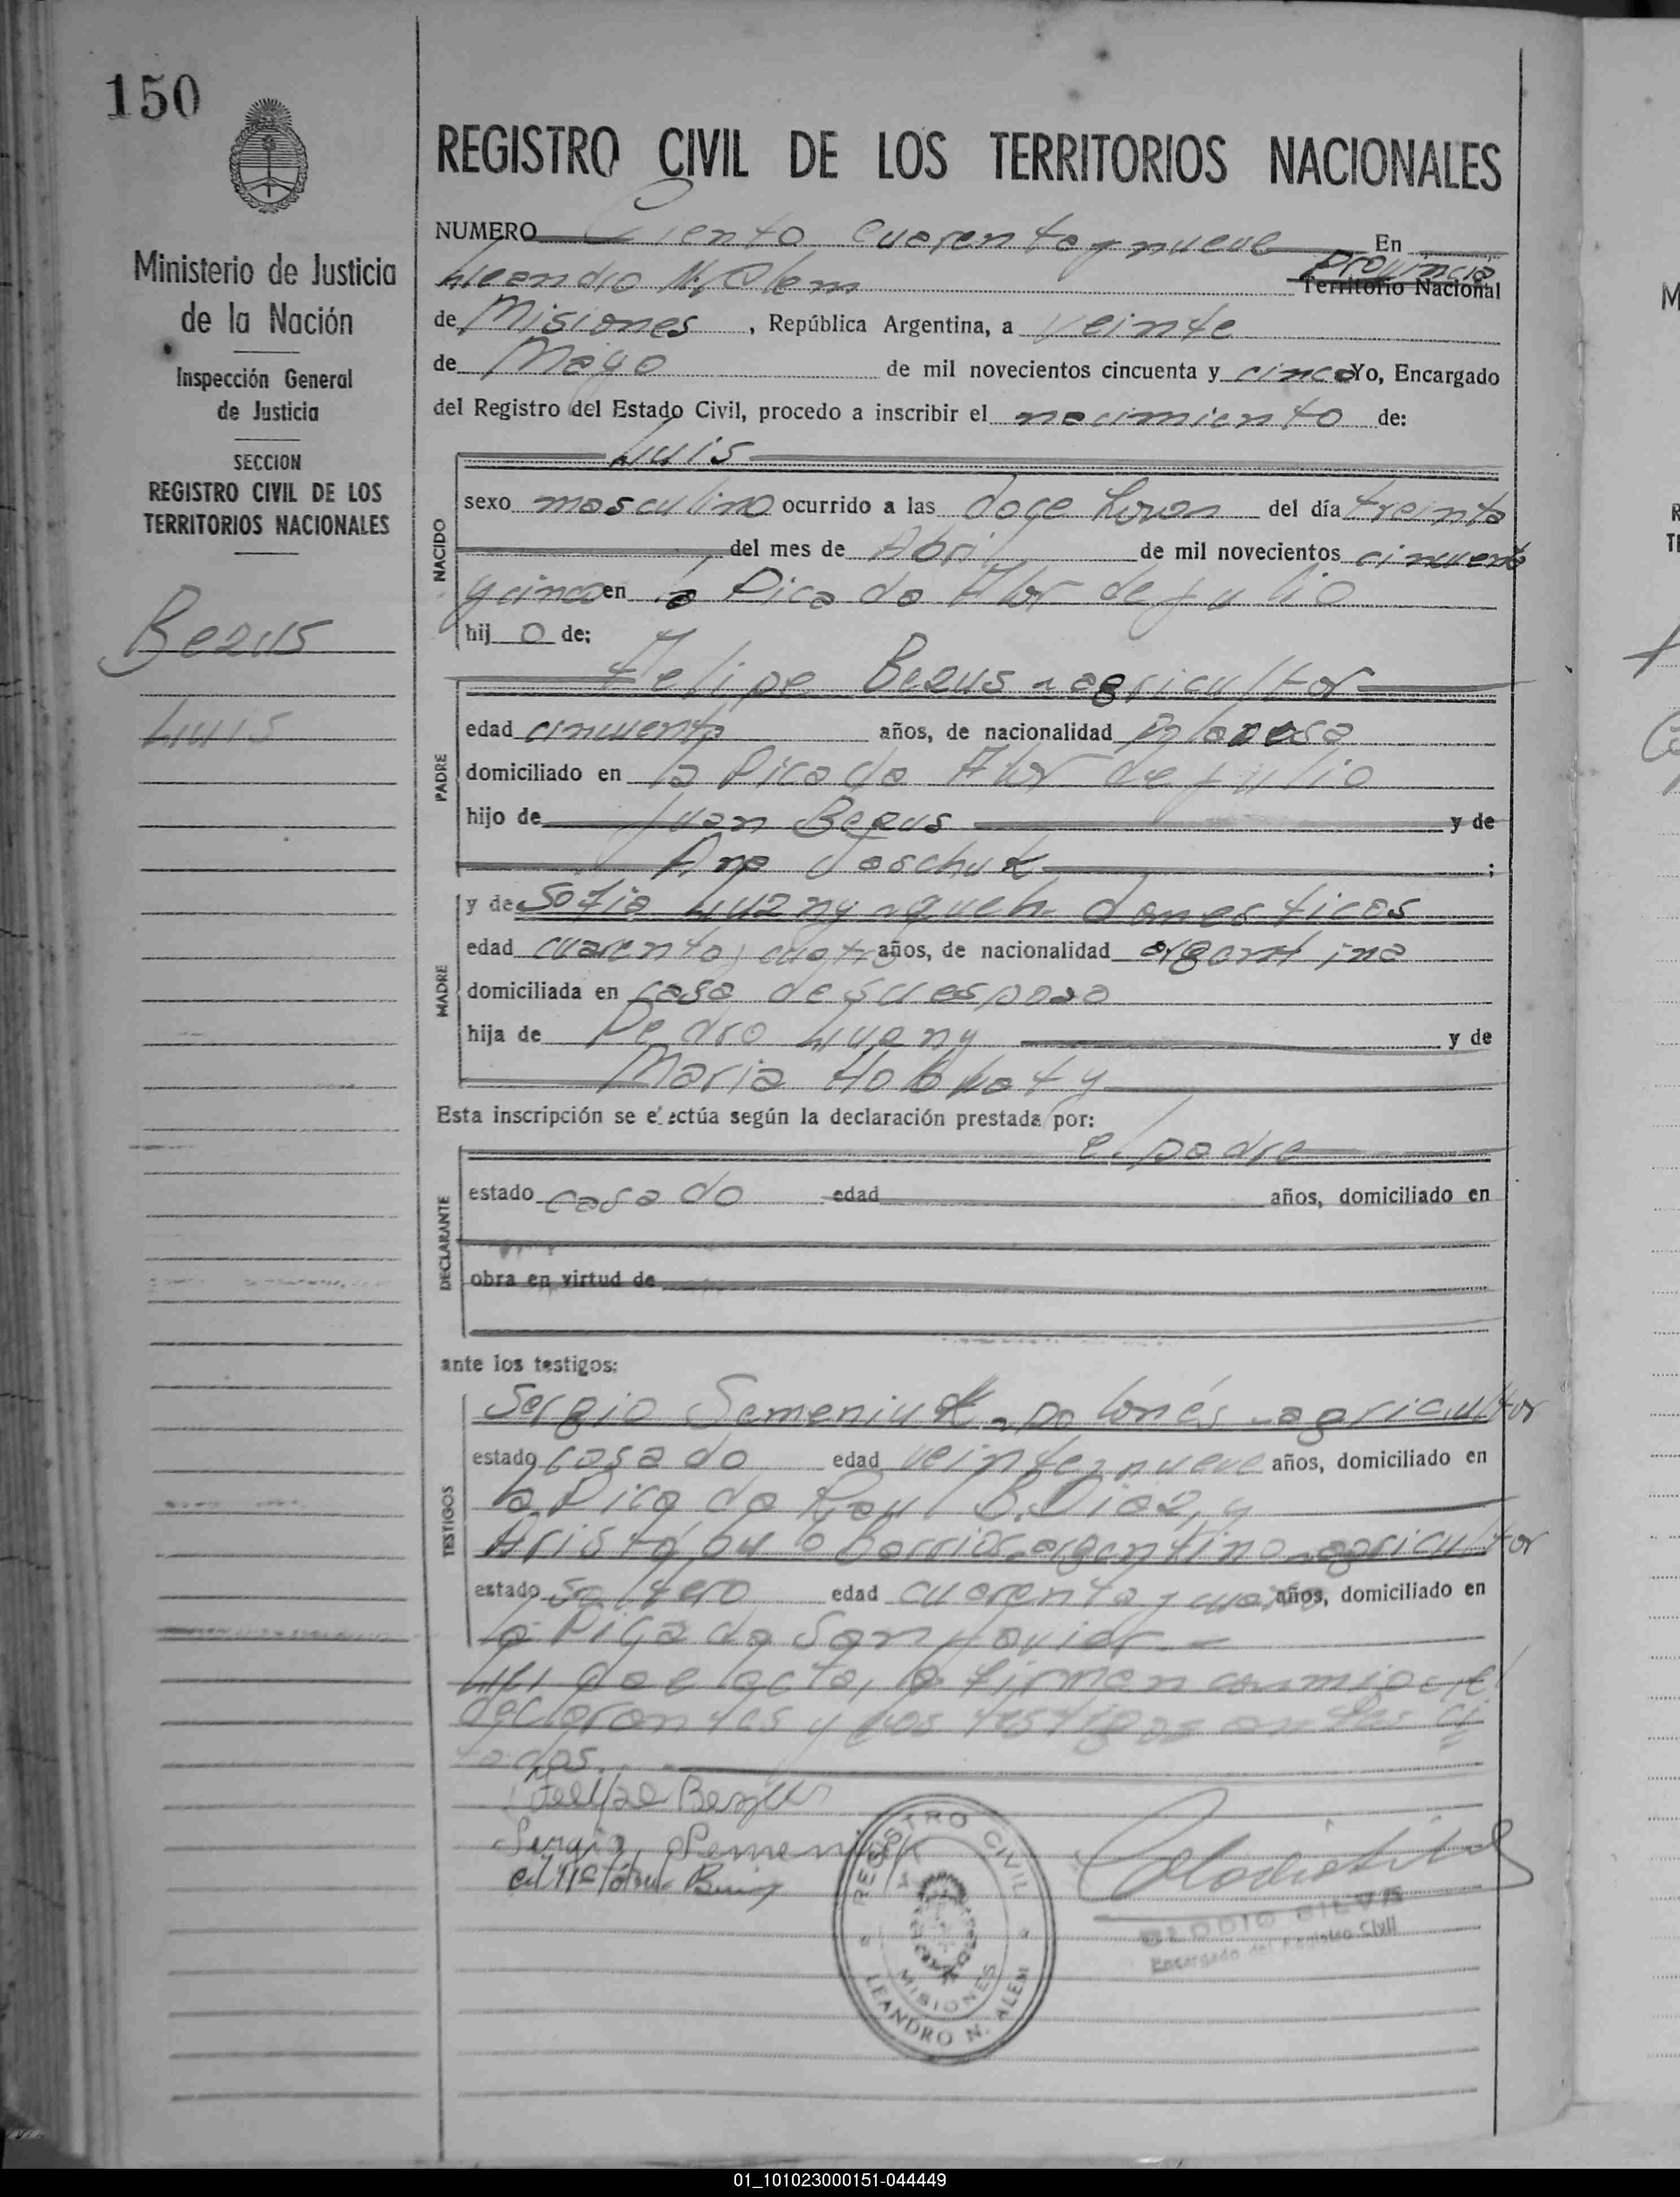 150
REGISTRO CIVIL DE LOS TERRITORIOS NACIONALES
Ministerio de Justicia
de la Nación
Inspección General
de Justicia
SECCION
REGISTRO CIVIL DE LOS
TERRITORIOS NACIONALES
Bezus
Luis
NUMERO Ciento cuarenta y nueve En
Leandro N. Alem provincia Territorio Nacional
de Misiones, República Argentina, a veinte
de Mayo de mil novecientos cincuenta y cinco Yo, Encargado
del Registro del Estado Civil, procedo a inscribir el nacimiento de:
Luis
NACIDO
sexo masculino ocurrido a las doce horas del día treinta
del mes de Abril de mil novecientos cincuenta
y cinco en la Picada Flor de Julio
hij o de:
Felipe Bezus - agricultor
PADRE
edad cincuenta años, de nacionalidad polonesa
domiciliado en la Picada Flor de Julio
hijo de Juan Bezus y de
Ana Jaschuk ;
MADRE
y de Sofia Luzny - queh. domesticos
edad cuarenta y cuatro años, de nacionalidad argentina
domiciliada en casa de su esposo
hija de Pedro Luzny y de
Maria Holowaty
Esta inscripción se efectúa según la declaración prestada por:
el padre
DECLARANTE
estado casado edad años, domiciliado en
obra en virtud de
ante los testigos:
TESTIGOS
Sergio Semeniuk - polonés - agricultor
estado casado edad veintenueve años, domiciliado en
la Picada Raul B. Diaz, y
Aristóbulo Barrios - argentino - agricultor
estado soltero edad cuarenta y años, domiciliado en
la Picada San Javier -
acta, la firman conmigo el
declarantes y los testigos ci
tados.
Felipe Bezus
Sergio Semeniuk
REGISTRO CIVIL
MISIONES
LEANDRO N. ALEM
ELODIO SILVA
Encargado del Registro Civil
01_101023000151-044449